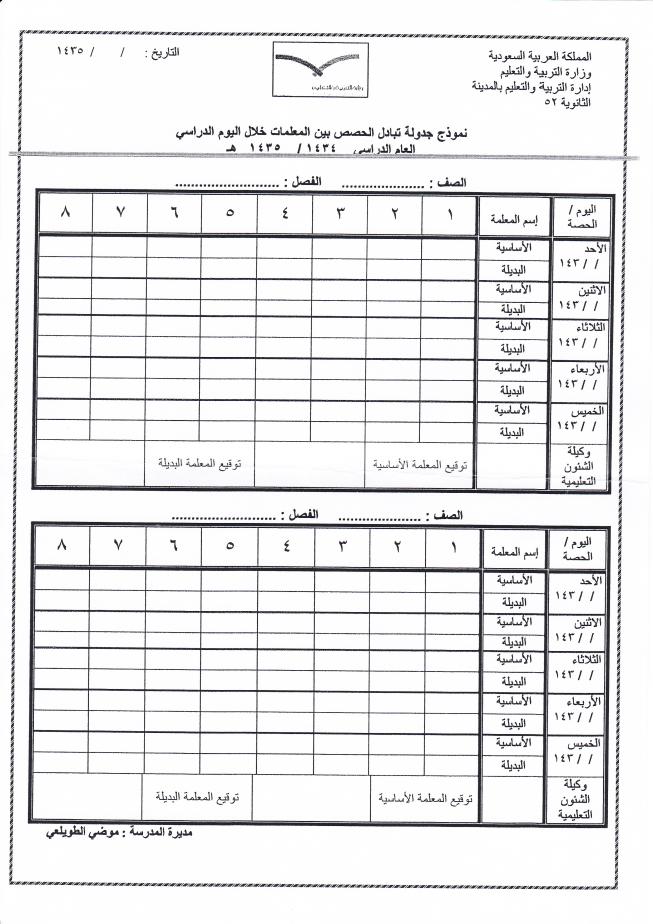 المملكة العربية السعودية
وزارة التربية والتعليم
إدارة التربية والتعليم بالمدينة
الثانوية ٥٢
التاريخ : / / ١٤٣٥
وزارة التربية والتعليم
نموذج جدولة تبادل الحصص بين المعلمات خلال اليوم الدراسي
العام الدراسي ١٤٣٤ / ١٤٣٥ هـ
الصف : ..................... الفصل : ...........................
اليوم / الحصة إسم المعلمة ١ ٢ ٣ ٤ ٥ ٦ ٧ ٨
الأحد الأساسية
/ / ١٤٣ البديلة
الاثنين الأساسية
/ / ١٤٣ البديلة
الثلاثاء الأساسية
/ / ١٤٣ البديلة
الأربعاء الأساسية
/ / ١٤٣ البديلة
الخميس الأساسية
/ / ١٤٣ البديلة
وكيلة الشئون التعليمية توقيع المعلمة الأساسية توقيع المعلمة البديلة
الصف : ..................... الفصل : ...........................
اليوم / الحصة إسم المعلمة ١ ٢ ٣ ٤ ٥ ٦ ٧ ٨
الأحد الأساسية
/ / ١٤٣ البديلة
الاثنين الأساسية
/ / ١٤٣ البديلة
الثلاثاء الأساسية
/ / ١٤٣ البديلة
الأربعاء الأساسية
/ / ١٤٣ البديلة
الخميس الأساسية
/ / ١٤٣ البديلة
وكيلة الشئون التعليمية توقيع المعلمة الأساسية توقيع المعلمة البديلة
مديرة المدرسة : موضي الطويلعي